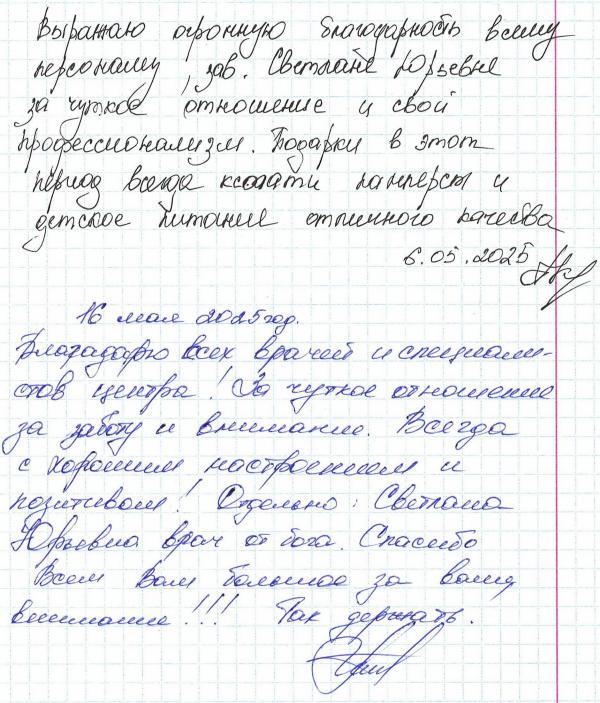 Выражаю огромную благодарность всему
персоналу, зав. Светлане Юрьевне
за чуткое отношение и свой
профессионализм. Подарки в этот
период всегда кстати памперсы и
детское питание отличного качества
6.05.2025
16 мая 2025 год.
Благадарю всех врачей и специали-
стов центра! За чуткое отношение
за заботу и внимание. Всегда
с хорошим настроением и
позитивом! Отдельно: Светлана
Юрьевна врач от бога. Спасибо
Всем Вам большое за вашу
внимание!!! Так держать.